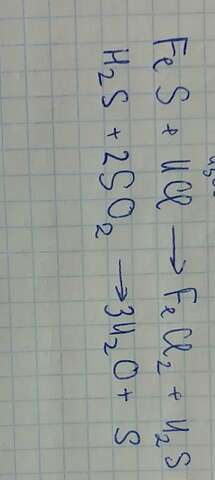 FeS + HCl → FeCl₂ + H₂S
H₂S + 2SO₂ → 3H₂O + S